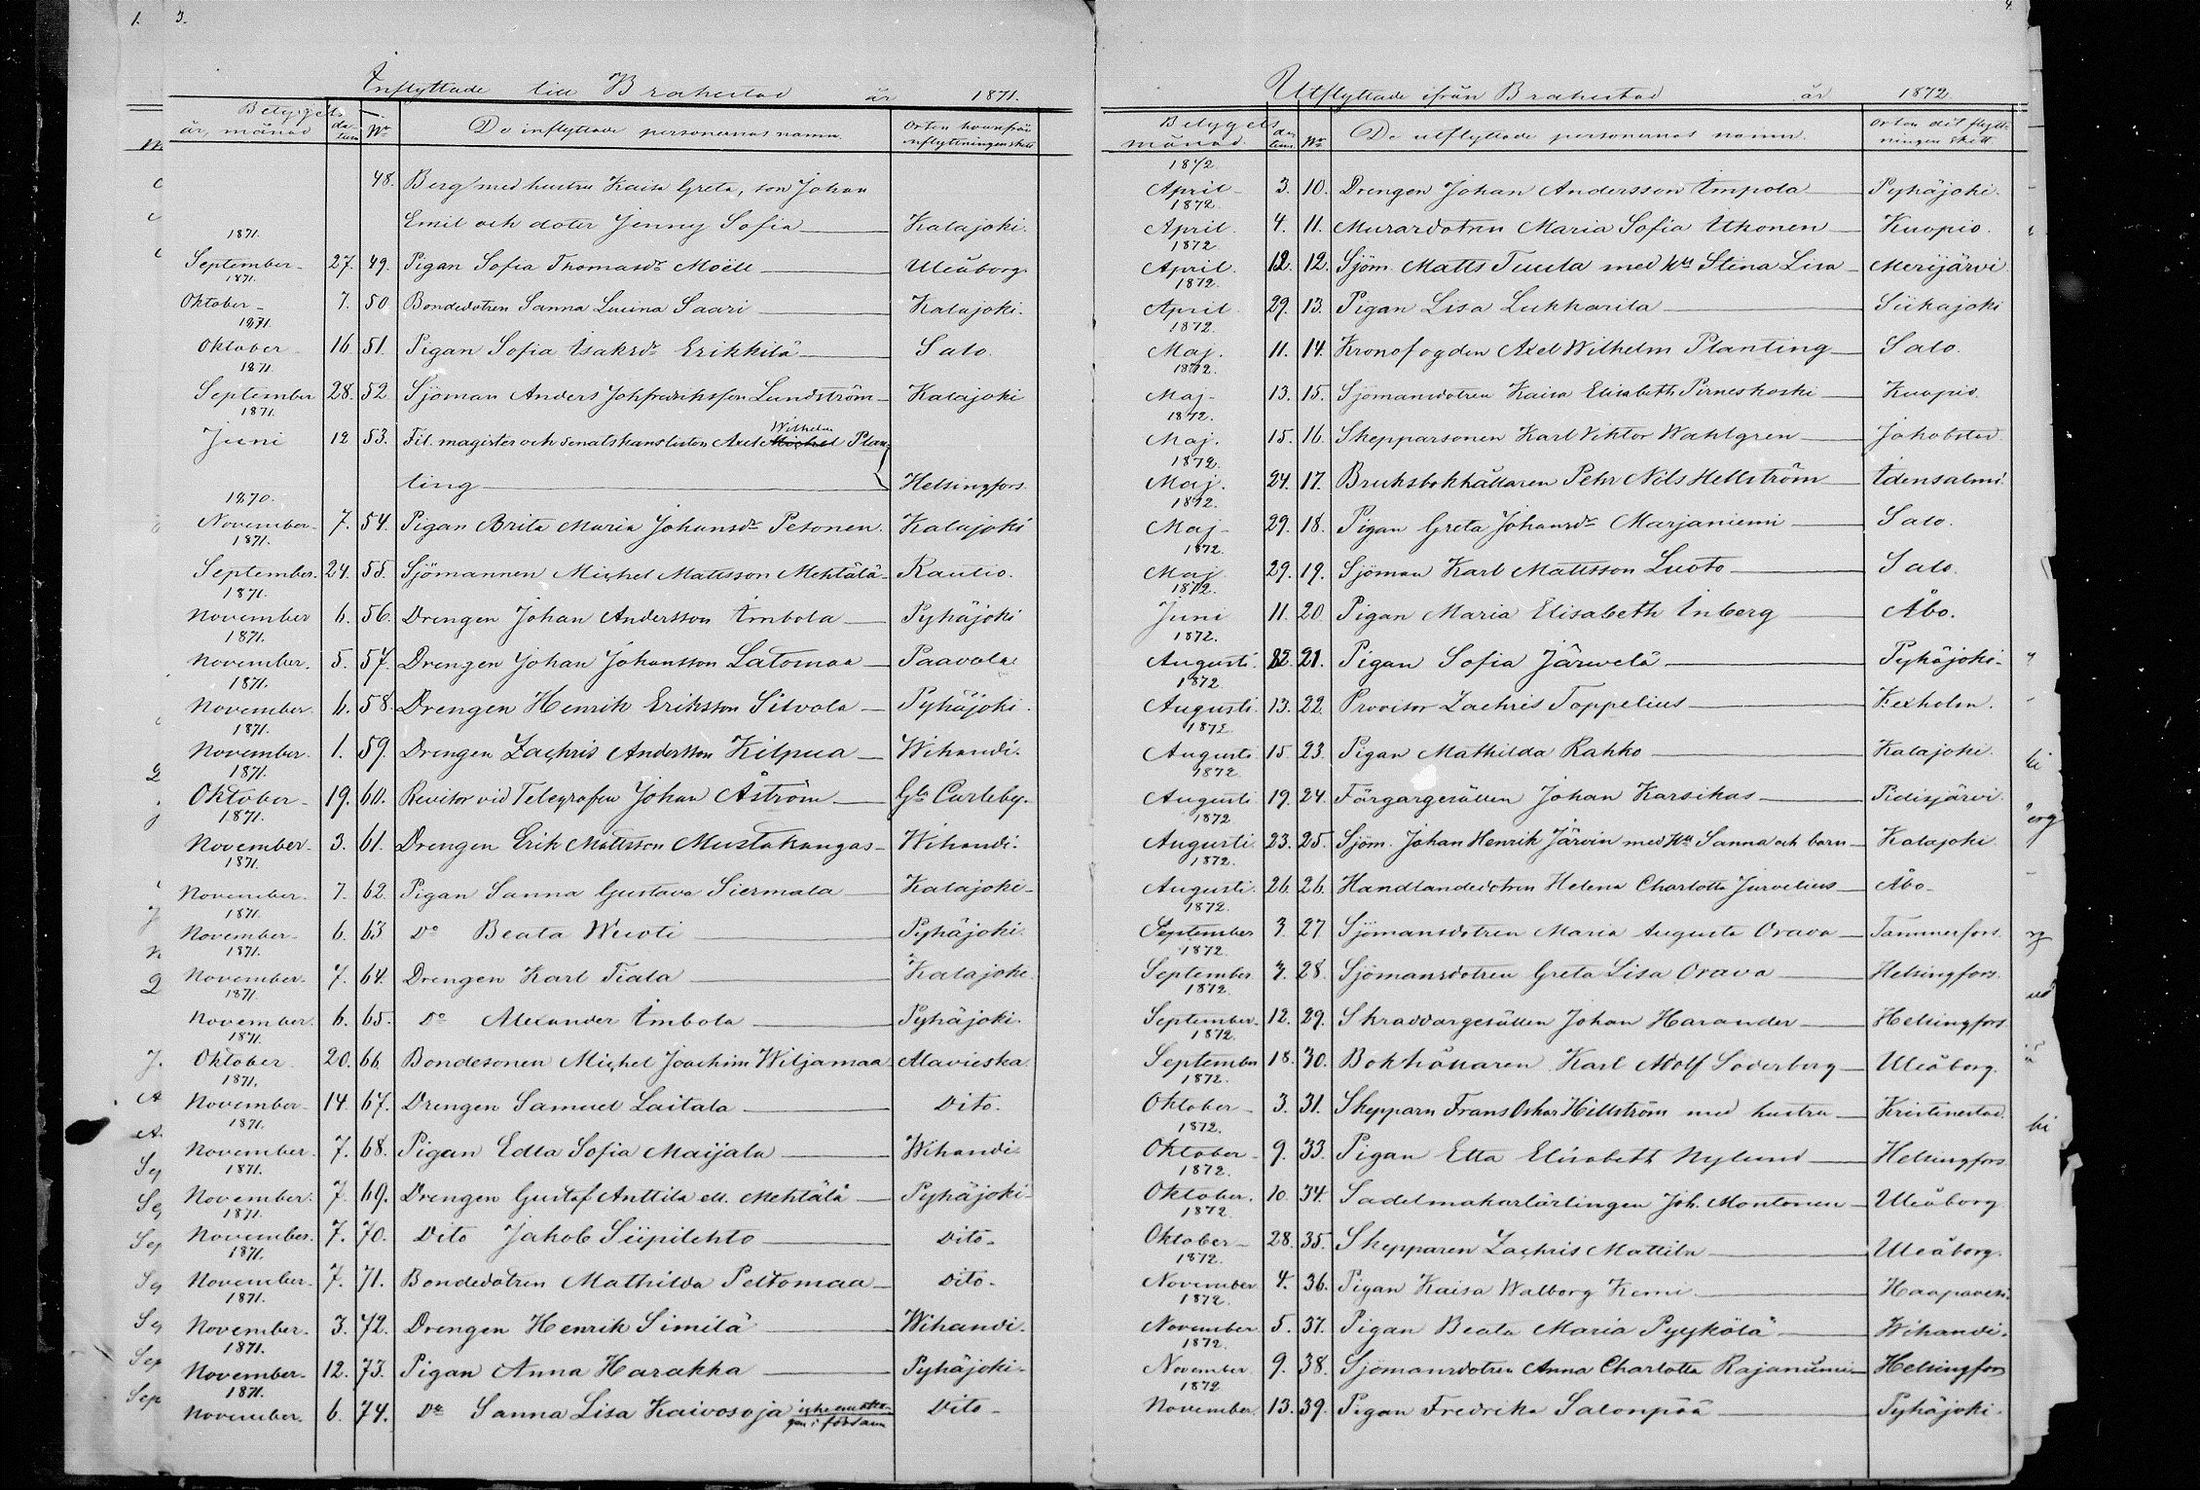 1.
3.
Inflyttade till Brahestad år 1871.
Betygets
år, månad
da-
tum
No
De inflyttade personernas namn.
Orten hvarifrån
inflyttningen skett
48. Berg med hustru Kaisa Greta, son Johan
Emil och doter Jenny Sofia Kalajoki.
1871.
September 27. 49. Pigan Sofia Thomasdr Moëll Uleåborg
1871.
Oktober 7. 50 Bondedotren Sanna Lovina Saari Kalajoki.
1871.
Oktober 16 51. Pigan Sofia Isaksdr Erikkilä Salo.
1871
September 28. 52 Sjöman Anders Johfredriksson Lundström Kalajoki
1871.
Juni 12 53. Fil. magister och senatskanslisten Axel Michel Wilhelm Plan-
ting Helsingfors.
1870.
November 7. 54. Pigan Brita Maria Johansdr Pesonen. Kalajoki
1871.
September. 24. 55. Sjömannen Michel Mattsson Mehtälä Rautio.
1871.
November 6. 56. Drengen Johan Andersson Imbola Pyhäjoki
1871.
November. 5. 57. Drengen Johan Johansson Latomaa Paavola
1871.
November. 6. 58. Drengen Henrik Eriksson Silvola Pyhäjoki.
1871.
November. 1. 59. Drengen Zachris Andersson Kilpua Wihandi.
1871.
Oktober 19. 60. Revisor vid Telegrafen Johan Åström Gla Carleby.
1871.
November. 3. 61. Drengen Erik Mattsson Mustakangas Wihandi.
1871.
November. 7. 62. Pigan Sanna Gustava Siermala Kalajoki
1871.
November 6. 63 Do Beata Wuoti Pyhäjoki.
1871.
November. 7. 64. Drengen Karl Tiala Kalajoki.
1871.
November. 6. 65. Do Alexander Imbola Pyhäjoki.
1871.
Oktober 20. 66. Bondesonen Michel Joachim Wiljamaa Alavieska.
1871.
November 14. 67. Drengen Samuel Laitala Dito.
1871.
November. 7. 68. Pigan Edla Sofia Maijala Wihandi.
1871.
November. 7. 69. Drengen Gustaf Anttila ell. Mehtälä Pyhäjoki
1871.
November. 7. 70. Dito Jakob Siipilehto Dito.
1871.
November. 7. 71. Bondedotren Mathilda Peltomaa Dito.
1871.
November. 3. 72. Drengen Henrik Similä Wihandi.
1871.
November. 12. 73. Pigan Anna Harakka Pyhäjoki
1871.
November. 6. 74. Do Sanna Lisa Kaivosoja Dito
4.
Utflyttade ifrån Brahestad år 1872.
Betygets
månad.
da-
tum
No
De utflyttade personernas namn.
Orten dit flytt-
ningen skett
1872
April 3. 10. Drengen Johan Andersson Impola Pyhäjoki.
1872.
April. 4. 11. Murardotren Maria Sofia Ukonen Kuopio.
1872
April. 12. 12. Sjöm. Matts Tuula med hu Stina Lisa Merijärvi
1872.
April 29. 13. Pigan Lisa Lukkarila Siikajoki
1872.
Maj. 11. 14. Kronofogden Axel Wilhelm Planting Salo.
1872.
Maj 13. 15. Sjömansdotren Kaisa Elisabeth Pirneskoski Kuopio.
1872.
Maj. 15. 16. Skepparsonen Karl Viktor Wahlgren Jakobstad
1872.
Maj. 24. 17. Bruksbokhållaren Pehr Nils Hellström Idensalmi
1872.
Maj 29. 18. Pigan Greta Johansdr Marjaniemi Salo.
1872.
Maj 29. 19. Sjöman Karl Mattsson Luoto Salo.
1872.
Juni 11. 20 Pigan Maria Elisabeth Inberg Åbo.
1872.
Augusti. 12. 21. Pigan Sofia Järvelä Pyhäjoki
1872
Augusti. 13. 22. Provisor Zachris Toppelius Kexholm.
1872
Augusti 15 23. Pigan Mathilda Rahko Kalajoki.
1872
Augusti 19. 24. Färgargesällen Johan Karsikas Pidisjärvi.
1872
Augusti. 23. 25. Sjöm. Johan Henrik Järvin med hu Sanna och barn Kalajoki
1872.
Augusti. 26. 26. Handlandedotren Helena Charlotta Jurvelius Åbo
1872.
September 3. 27 Sjömansdotren Maria Augusta Orava Tammerfors.
1872.
September 7. 28. Sjömansdotren Greta Lisa Orava Helsingfors.
1872.
September. 12. 29. Skraddargesällen Johan Harander Helsingfors
1872.
September 18. 30. Bokhållaren Karl Adolf Söderberg Uleåborg.
1872.
Oktober 3. 31. Skepparn Frans Oskar Hellström med hustru Kristinestad.
1872.
Oktober 9. 33. Pigan Etta Elisabeth Nylund Helsingfors
1872.
Oktober. 10. 34. Sadelmakarlärlingen Joh. Montonen Uleåborg
1872.
Oktober 28. 35. Skepparen Zachris Mattila Uleåborg.
1872.
November 4. 36. Pigan Kaisa Walborg Kemi Haapavesi.
1872.
November 5. 37. Pigan Beata Maria Pyykölä Wihandi.
1872.
November 9. 38. Sjömansdotren Anna Charlotta Rajaniemi Helsingfors
1872
November. 13. 39. Pigan Fredrika Salonpää Pyhäjoki.